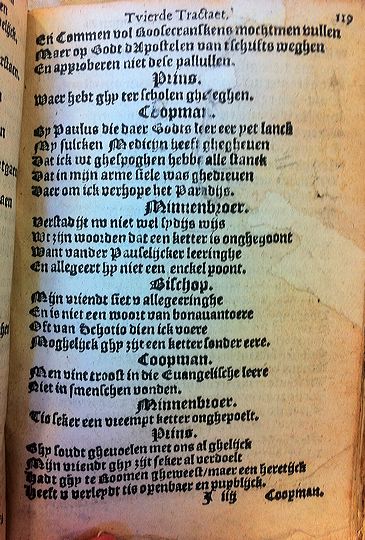 Tvierde Tractaet.
119
En Commen vol Roosecranskens mochtmen vullen
Maer op Godt d'Apostelen van tschrifts weghen
En approberen niet dese pallullen.
Prins.
Waer hebt ghy ter scholen gheleghen.
Coopman.
By Paulus die daer Godts leer eer yet lanck
My sulcken Medicijn heeft ghegheven
Dat ick wt ghespoghen hebbe alle stanck
Dat in mijn arme siele was ghedreven
Daer om ick verhope het Paradijs.
Minnenbroer.
Verstadijt nv niet wel sydijs wijs
Wt zijn woorden dat een ketter is onghegoont
Want vander Pauselijcker leeringhe
En allegeert hy niet een enckel poont.
Bischop.
Mijn vriendt siet v allegeeringhe
En is niet een woort van bonauantoere
Oft van Schotio dien ick voere
Moghelijck ghy zijt een ketter sonder eere.
Coopman.
Men vint troost in die Euangelische leere
Niet in smenschen vonden.
Minnenbroer.
Tis seker een vreempt ketter onghepoelt.
Prins.
Ghy soudt ghevoelen met ons al ghelijck
Mijn vriendt ghy zijt seker al verdoelt
Hadt ghy te Roomen gheweest/maer een heretijck
Heeft v verleydt tis openbaer en publijck.
J iij
Coopman.